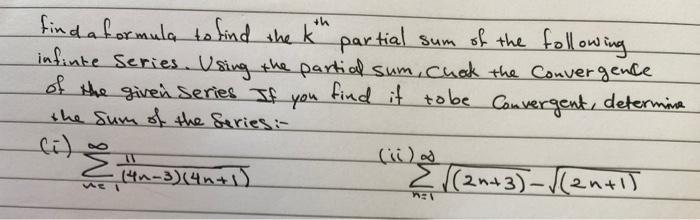 find a formula to find the kᵗʰ partial sum of the following
infinte Series. Using the partial sum, Cuek the Convergence
of the given series If you find it to be Convergent, determine
the Sum of the Series:-
(i) ∞ Σ n=1 11/(4n-3)(4n+1)
(ii) ∞ Σ n=1 √(2n+3) - √(2n+1)